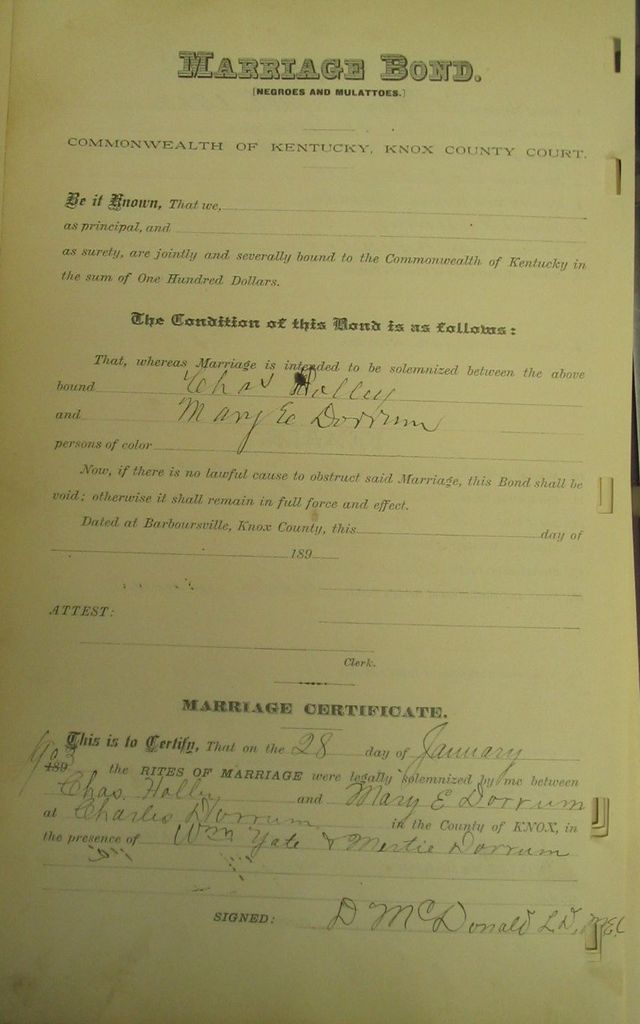 MARRIAGE BOND.
[NEGROES AND MULATTOES.]
COMMONWEALTH OF KENTUCKY, KNOX COUNTY COURT.
Be it Known, That we,
as principal, and
as surety, are jointly and severally bound to the Commonwealth of Kentucky in
the sum of One Hundred Dollars.
The Condition of this Bond is as follows:
That, whereas Marriage is intended to be solemnized between the above
bound Chas Holley
and Mary E Dorrum
persons of color
Now, if there is no lawful cause to obstruct said Marriage, this Bond shall be
void; otherwise it shall remain in full force and effect.
Dated at Barboursville, Knox County, this day of
189
ATTEST:
Clerk.
MARRIAGE CERTIFICATE.
This is to Certify, That on the 28 day of January
1903 189 the RITES OF MARRIAGE were legally solemnized by me between
Chas. Holly and Mary E Dorrum
at Charles Dorrum in the County of KNOX, in
the presence of Wm Yate & Mertie Dorrum
SIGNED: D McDonald L.D.